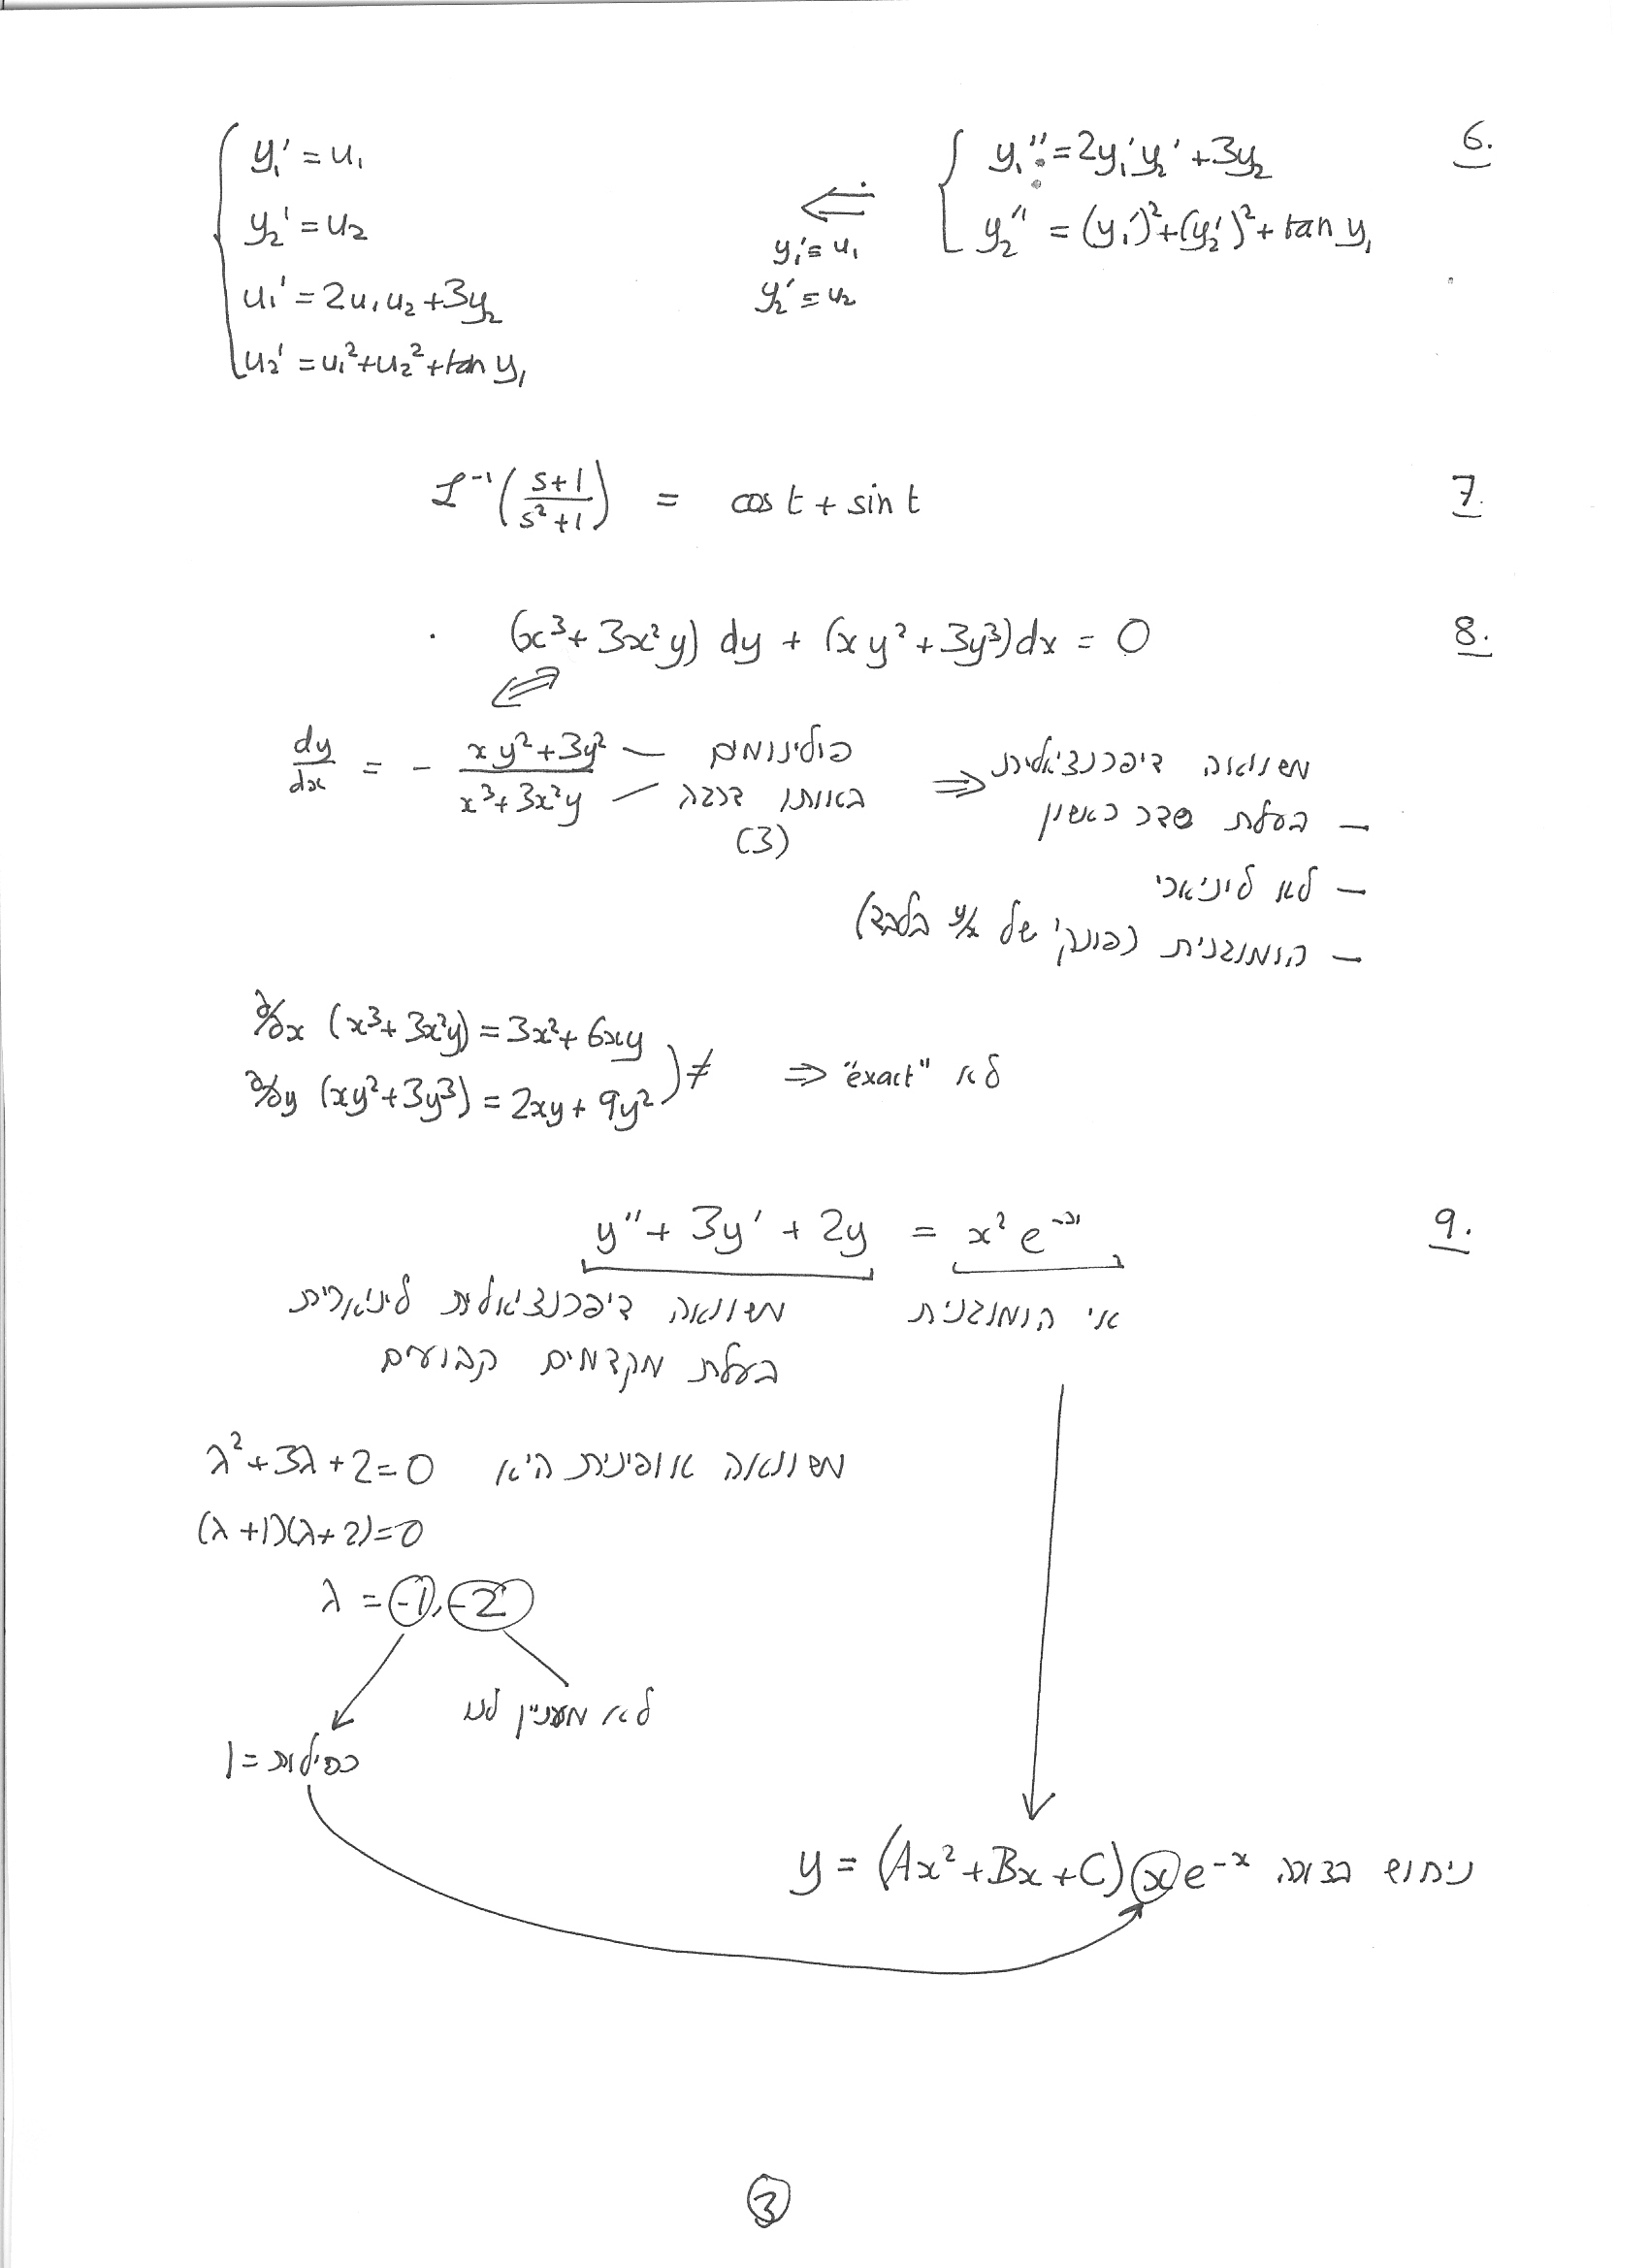 6.
y₁'' = 2y₁'y₂' + 3y₂
y₂'' = (y₁')² + (y₂')² + tan y₁
⇐
y₁' = u₁
y₂' = u₂
y₁' = u₁
y₂' = u₂
u₁' = 2u₁u₂ + 3y₂
u₂' = u₁² + u₂² + tan y₁
7.
ℒ⁻¹((s+1)/(s²+1)) = cos t + sin t
8.
(x³ + 3x²y) dy + (xy² + 3y³) dx = 0
⇐
dy/dx = - (xy² + 3y²)/(x³ + 3x²y)
פולינומים
באותו דרגה
(3)
⇒ משוואה דיפרנציאלית
– בעלת סדר ראשון
– לא ליניארי
– הומוגנית (פונק' של y/x בלבד)
∂/∂x (x³ + 3x²y) = 3x² + 6xy
∂/∂y (xy² + 3y³) = 2xy + 9y²
≠ ⇒ לא "exact"
9.
y'' + 3y' + 2y = x² e⁻ˣ
אי הומוגנית
משוואה דיפרנציאלית ליניארית
בעלת מקדמים קבועים
משוואה אופינית היא λ² + 3λ + 2 = 0
(λ + 1)(λ + 2) = 0
λ = -1, -2
לא מעניין לנו
כפילות = 1
ניחוש נבון y = (Ax² + Bx + C) x e⁻ˣ
3